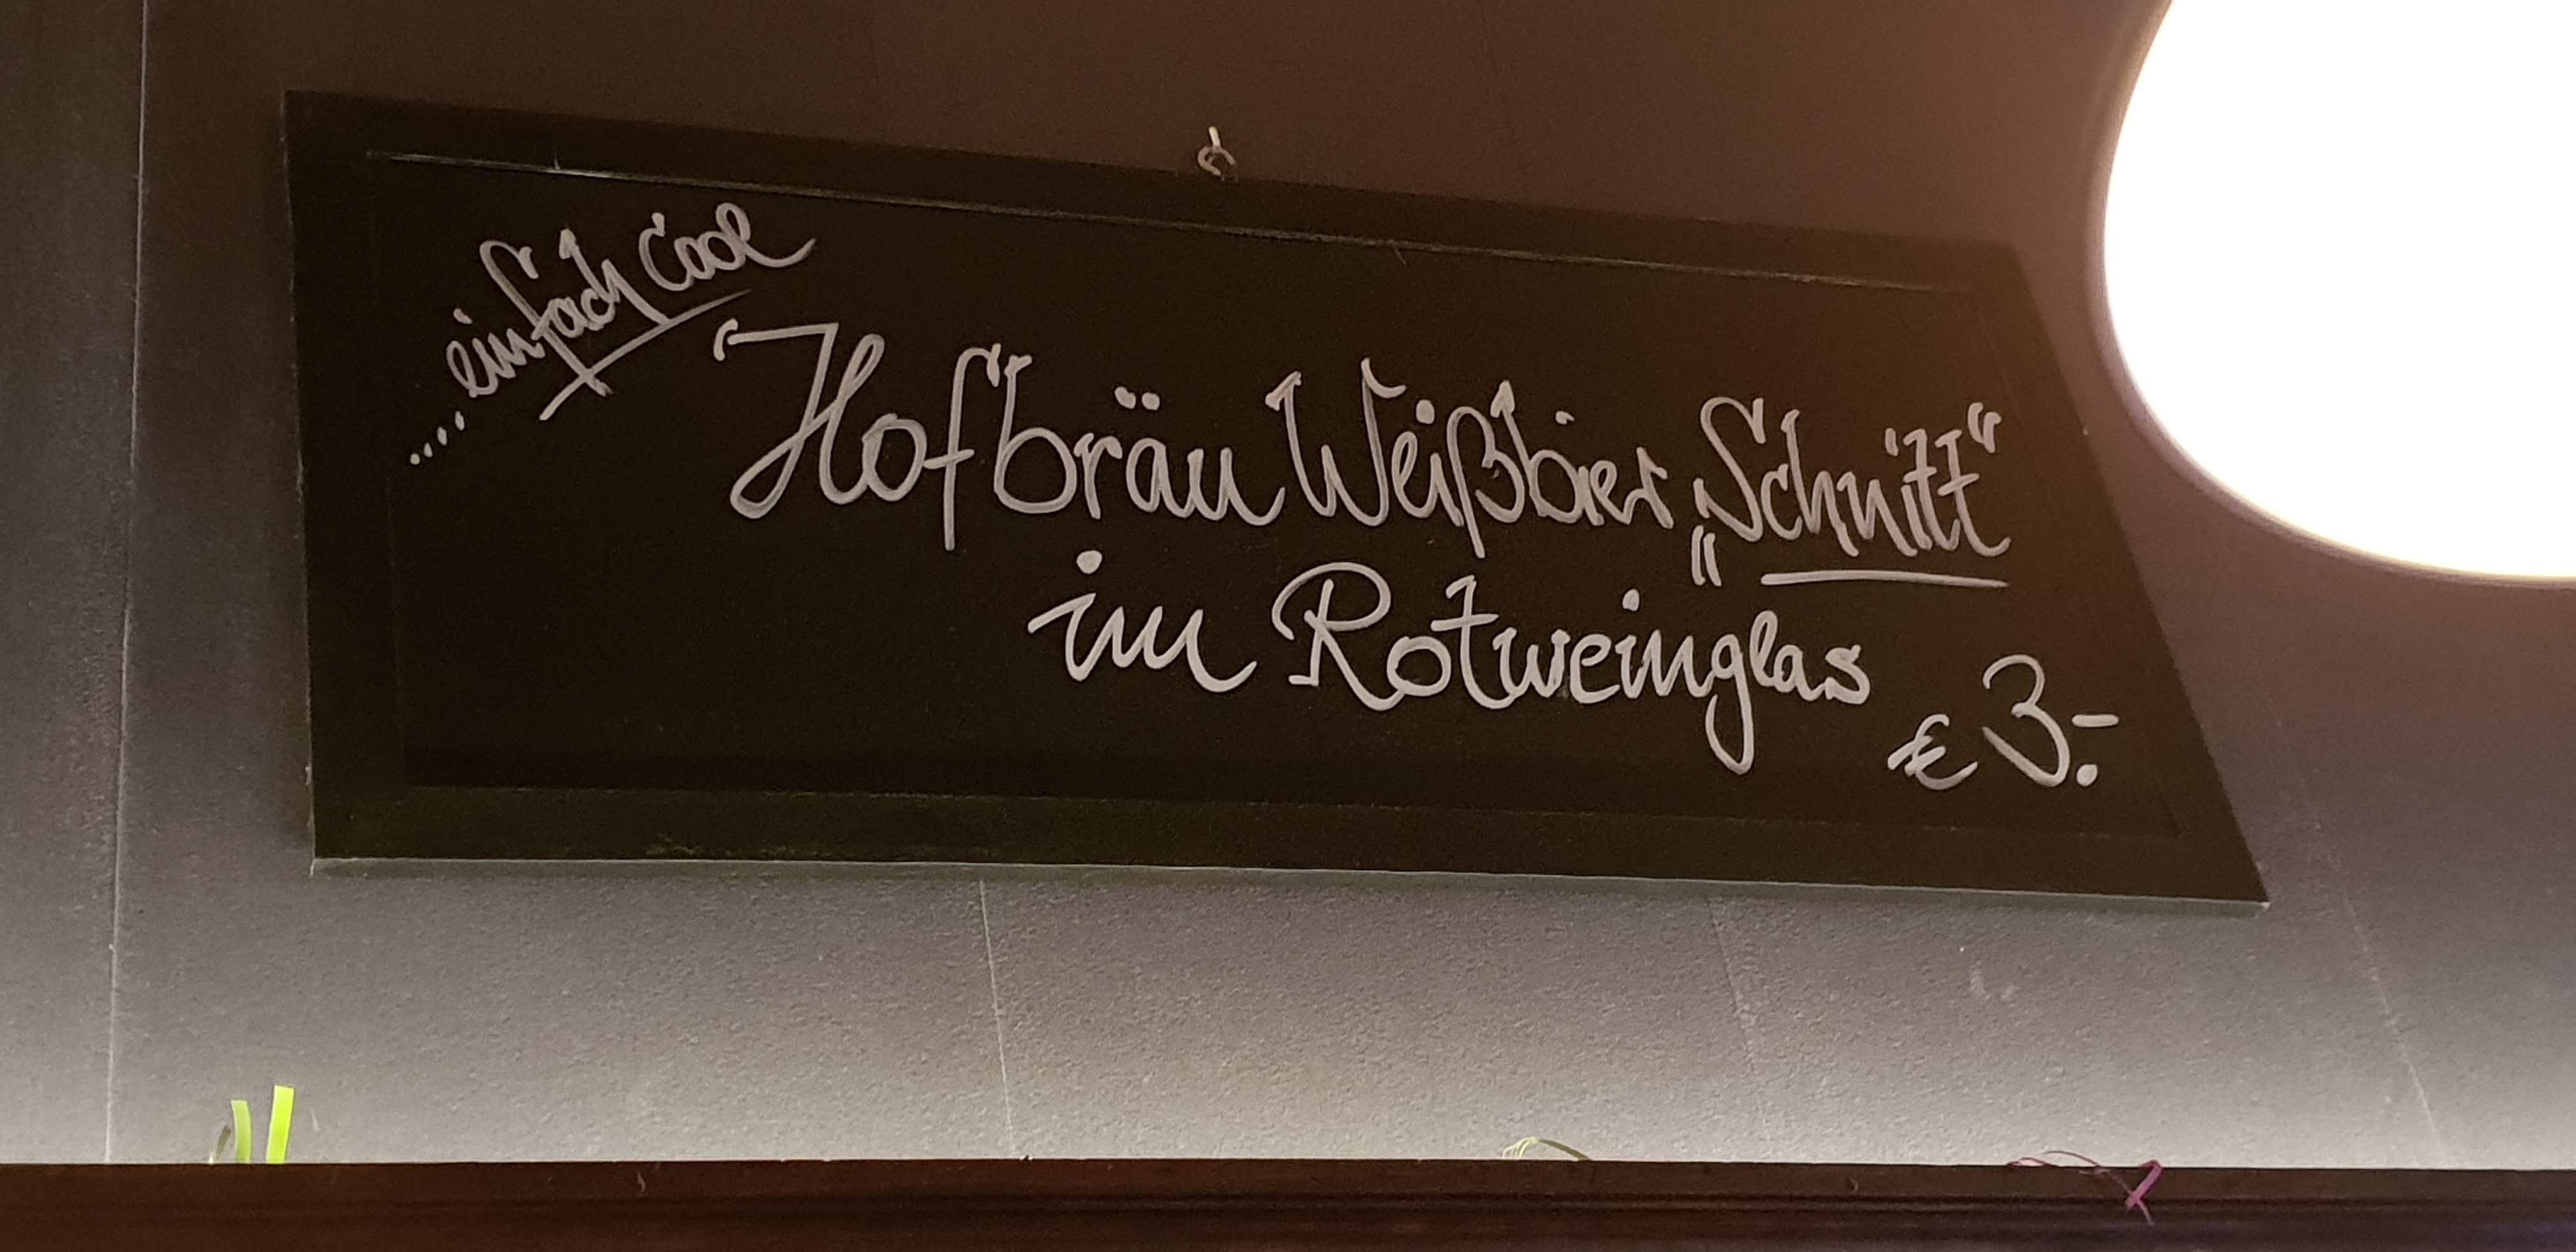 ....einfach cool
Hofbräu Weißbier „Schnitt“
im Rotweinglas
€ 3.-